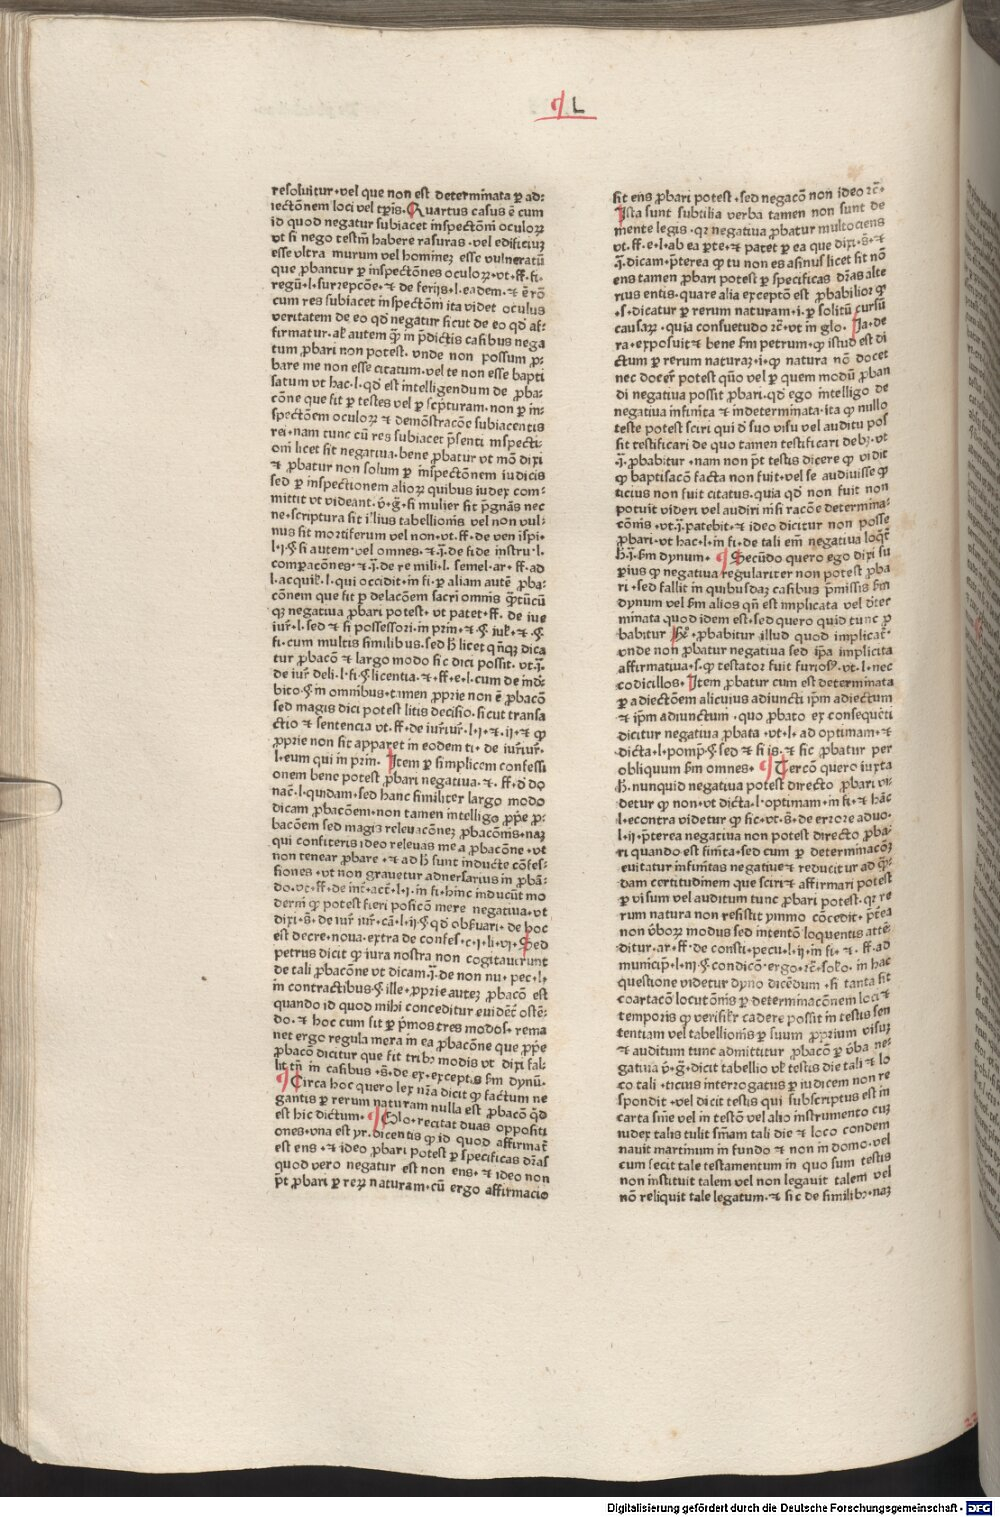 ¶ L
resoluitur·vel que non est determi̅ata ꝑ ad:
iectōnem loci vel tp̄is·Quartus casus ē cum
id quod negatur subiacet īnspectōni oculoꝝ
vt si nego testm̄ habere rasuras·vel edificiuꝫ
esse vltra murum vel homineꝫ esse vulneratū
que ꝓbantur ꝑ inspectōnes oculoꝝ·vt·ff·fi·
regū·l·surrepcōe·⁊ de ferijs·l·eadem·⁊ ē rō
cum res subiacet inspectōni ita videt oculus
veritatem de eo qd̄ negatur sicut de eo qd̄ af:
firmatur·al̄ autem q̄ꝫ in p̄dictis casibus nega
tum ꝓbari non potest·vnde non possum ꝓ:
bare me non esse citatum·vel te non esse bapti
satum vt hac·l·qd̄ est intelligendum de ꝓba:
cōne que fit ꝑ testes vel ꝑ scp̄turam·non ꝑ in:
spectōem oculoꝝ ⁊ demōstracōe subiacentis
rei·nam tunc cū res subiacet p̄senti inspecti:
oni licet sit negatiua·bene ꝓbatur vt mō dixi
⁊ ꝓbatur non solum ꝑ inspectōnem iudicis
sed ꝑ inspectionem alioꝝ quibus iudex com:
mittit vt videant·v̄·g̅·si mulier sit p̄gnās nec
ne·scriptura sit illius tabellionis vel non vul:
nus sit mortiferum vel non·vt·ff·de ven īspi·
l·j·§ si autem·vel omnes·⁊·j̄·de fide instru·l·
comꝑacōnes·⁊·j̄·de re mili·l·semel·ar·ff·ad
l·acquil·l·qui occidit·in fi·ꝑ aliam autē ꝓba:
cōnem que fit ꝑ delacōem sacri omnis q̄ꝫtūcū
qꝫ negatiua ꝓbari potest·vt patet·ff·de iue
iur̄·l·sed ⁊ si possessori·in prin·⁊·§ iuł·⁊·§
fi·cum multis similibus·sed h̄ licet qn̄qꝫ dica
tur ꝓbacō ⁊ largo modo sic dici possit·vt·j̄·
de iur̄ deli·l·fi·§ licentia·⁊·ff·e·l·cum de ind̄e
bito·§ in omnibus·tamen ꝓprie non ē ꝓbacō
sed magis dici potest litis decisio·sicut transa
ctio ⁊ sentencia vt·ff·de iur̄iur̄·l·j·⁊·ij·⁊ ꝙ
ꝓprie non sit apparet in eodem ti·de iur̄iur̄·
l·eum qui in prin·Item ꝑ simplicem confessi
onem bene potest ꝓbari negatiua·⁊·ff·d̄ do
nac̄·l·quidam·sed hanc similiter largo modo
dicam ꝓbacōem·non tamen intelligo ꝓp̄e ꝓ:
bacōem sed magis releuacōneꝫ ꝓbacōnis·naꝫ
qui confiteris ideo releuas me a ꝓbacōne·vt
non tenear ꝓbare·⁊ ad h̄ sunt inducte cōfes:
siones·vt non grauetur aduersarius in ꝓbā:
do·vt·ff·de int̄·act̄·l·j·in fi·hinc inducūt mo
derni ꝙ potest fieri posicōn mere negatiua·vt
dixi·s̄·de iur̄ iur̄·cā·l·ij·§ qd̄ obẜuari·de hoc
est decre·noua·extra de confes·c·j·li·vj·Sed
petrus dicit ꝙ iura nostra non cogitauerunt
de tali ꝓbacōne vt dicam·j̄·de non nu·pec·l·
in contractibus·§ ille·ꝓprie auteꝫ ꝓbacō est
quando id quod mihi conceditur euidēc̄ ostē:
do·⁊ hoc cum fit ꝑ p̄mos tres modos·rema
net ergo regula mera in ea ꝓbacōne que ꝓp̄e
ꝓbacō dicitur que fit tribꝫ modis vt dixi fal:
lit tn̄ in casibus·s̄·de ex·exceptis ẜm dynū·
¶ Circa hoc quero lex nr̄a dicit ꝙ factum ne
gantis ꝑ rerum naturam nulla est ꝓbacō q̄d
est hic dictum·¶ Glo·recitat duas oppositi
ones·vna est yr·dicentis ꝙ id quod affirmat̄
est ens·⁊ ideo ꝓbari potest ꝑ specificas dr̄as
quod vero negatur est non ens·⁊ ideo non
p̄t ꝓbari ꝑ reꝝ naturam·cū ergo affirmacio
sit ens ꝓbari potest·sed negacōn non ideo ⁊c̄·
Ista sunt subtilia verba tamen non sunt de
mente legis·qꝛ negatiua ꝓbatur multociens
vt·ff·e·l·ab ea ꝑte·⁊ patet ꝑ ea que dixi·s̄·⁊
j̄·dicam·p̄terea ꝙ tu non es asinus licet sit nō
ens tamen ꝓbari potest ꝑ specificas dr̄as alte
rius entis·quare alia exceptōn est ꝓbabilior ꝙ
·s·dicatur ꝑ rerum naturam·i·ꝑ solitū cursū
causaꝝ·quia consuetudo ⁊c̄·vt in glo·Ja·de
ra·exposuit ⁊ bene ẜm petrum·ꝙ istud est di
ctum ꝑ rerum naturaꝫ·i·ꝙ natura nō docet
nec docer̄ potest qūo vel ꝑ quem modū ꝓban
di negatiua possit ꝓbari·qd̄ ego intelligo de
negatiua infinita ⁊ indeterminata·ita ꝙ nullo
teste potest sciri qui d̄ suo visu vel auditu pos
sit testificari de quo tamen testificari debꝫ·vt
j̄·ꝓbabitur·nam non p̄t testis dicere ꝙ vidit
ꝙ baptisacōn facta non fuit·vel se audiuisse ꝙ
ticius non fuit citatus·quia qd̄ non fuit non
potuit videri vel audiri nisi racōe determina:
tōnis·vt·j̄·patebit·⁊ ideo dicitur non posse
ꝓbari·vt hac·l·in fi·de tali em̄ negatiua loqt̄
h̄·j̄·ẜm dynum·¶ Secūdo quero ego dixi su
ꝑius ꝙ negatiua regulariter non potest ꝓba
ri·sed fallit in quibusdaꝫ casibus p̄missis ẜm
dynum vel ẜm alios qn̄ est implicata vel d̄ter
minata quod idem est·sed quero quid tunc ꝓ
babitur Rn̄·ꝓbabitur illud quod implicat̄·
vnde non ꝓbatur negatiua sed ip̄a implicita
affirmatiua·s·ꝙ testator fuit furiosꝰ·vt·l·nec
codicillos·Item ꝓbatur cum est determinata
ꝑ adiectōem alicuius adiuncti ip̄m adiectum
⁊ ip̄m adiunctum·quo ꝓbato ex consequēti
dicitur negatiua ꝓbata·vt·l·ad optimam·⁊
dicta·l·pomp̄·§ sed ⁊ si is·⁊ sic ꝓbatur per
obliquum ẜm omnes·¶ Tercō quero iuxta
h̄·nunquid negatiua potest directo ꝓbari vi:
detur ꝙ non·vt dicta·l·optimam·in fi·⁊ hāc
l·econtra videtur ꝙ sic·vt·s̄·de errore aduo·
l·ij·p̄terea negatiua non potest directo ꝓba:
ri quando est finita·sed cum ꝑ determinacōꝫ
euitatur infinitas negatiue ⁊ reducitur ad q̄ꝫ
dam certitudinem que sciri ⁊ affirmari potest
ꝑ visum vel auditum tunc ꝓbari potest·qꝛ re
rum natura non resistit ymmo cōcedit·p̄t̄ea
non v̄boꝝ modus sed intentōn loquentis attē:
ditur·ar·ff·de consti·pecu·l·ij·in fi·⁊·ff·ad
municip̄·l·nj·§ condicōn·ergo·⁊c̄·solo·in hac
questione videtur dyno dicēdum·si tanta sit
coartacōn locutōnis ꝑ determinacōnem loci ⁊
temporis ꝙ verisił̄r cadere possit in testis sen
tentiam vel tabellionis ꝑ suum ꝓprium visuꝫ
⁊ auditum tunc admittitur ꝓbacō ꝑ v̄ba ne:
gatiua v̄·g̅·dicit tabellio vel̄ testis die tali ⁊ lo
co tali·ticius interrogatus ꝑ iudicem non re
spondit·vel dicit testis qui subscriptus est in
carta sine vel in testōn vel alio instrumento cuꝫ
iudex talis tulit sn̄iam tali die ⁊ loco condem
nauit martinum in fundo ⁊ non in domo·vel
cum fecit tale testamentum in quo sum testis
non instituit talem vel non legauit talem vel
nō reliquit tale legatum·⁊ sic de similibꝫ·naꝫ
Digitalisierung gefördert durch die Deutsche Forschungsgemeinschaft - DFG